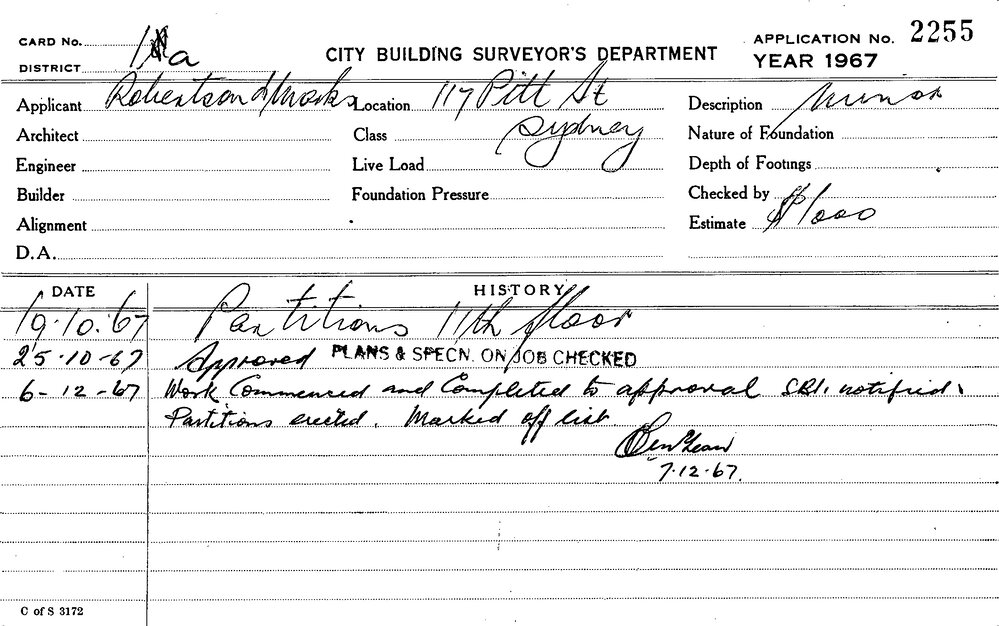 CARD No.
DISTRICT 1 a
CITY BUILDING SURVEYOR'S DEPARTMENT
APPLICATION No. 2255
YEAR 1967
Applicant Robertson & Marks Location 117 Pitt St Description Minor
Architect Class Sydney Nature of Foundation
Engineer Live Load Depth of Footings
Builder Foundation Pressure Checked by
Alignment Estimate $1000
D.A.
DATE HISTORY
19.10.67 Partitions 11th floor
25.10.67 Approved PLANS & SPECN. ON JOB CHECKED
6-12-67 Work Commenced and Completed to approval SBI. notified.
Partitions erected. Marked off list
7.12.67.
C of S 3172